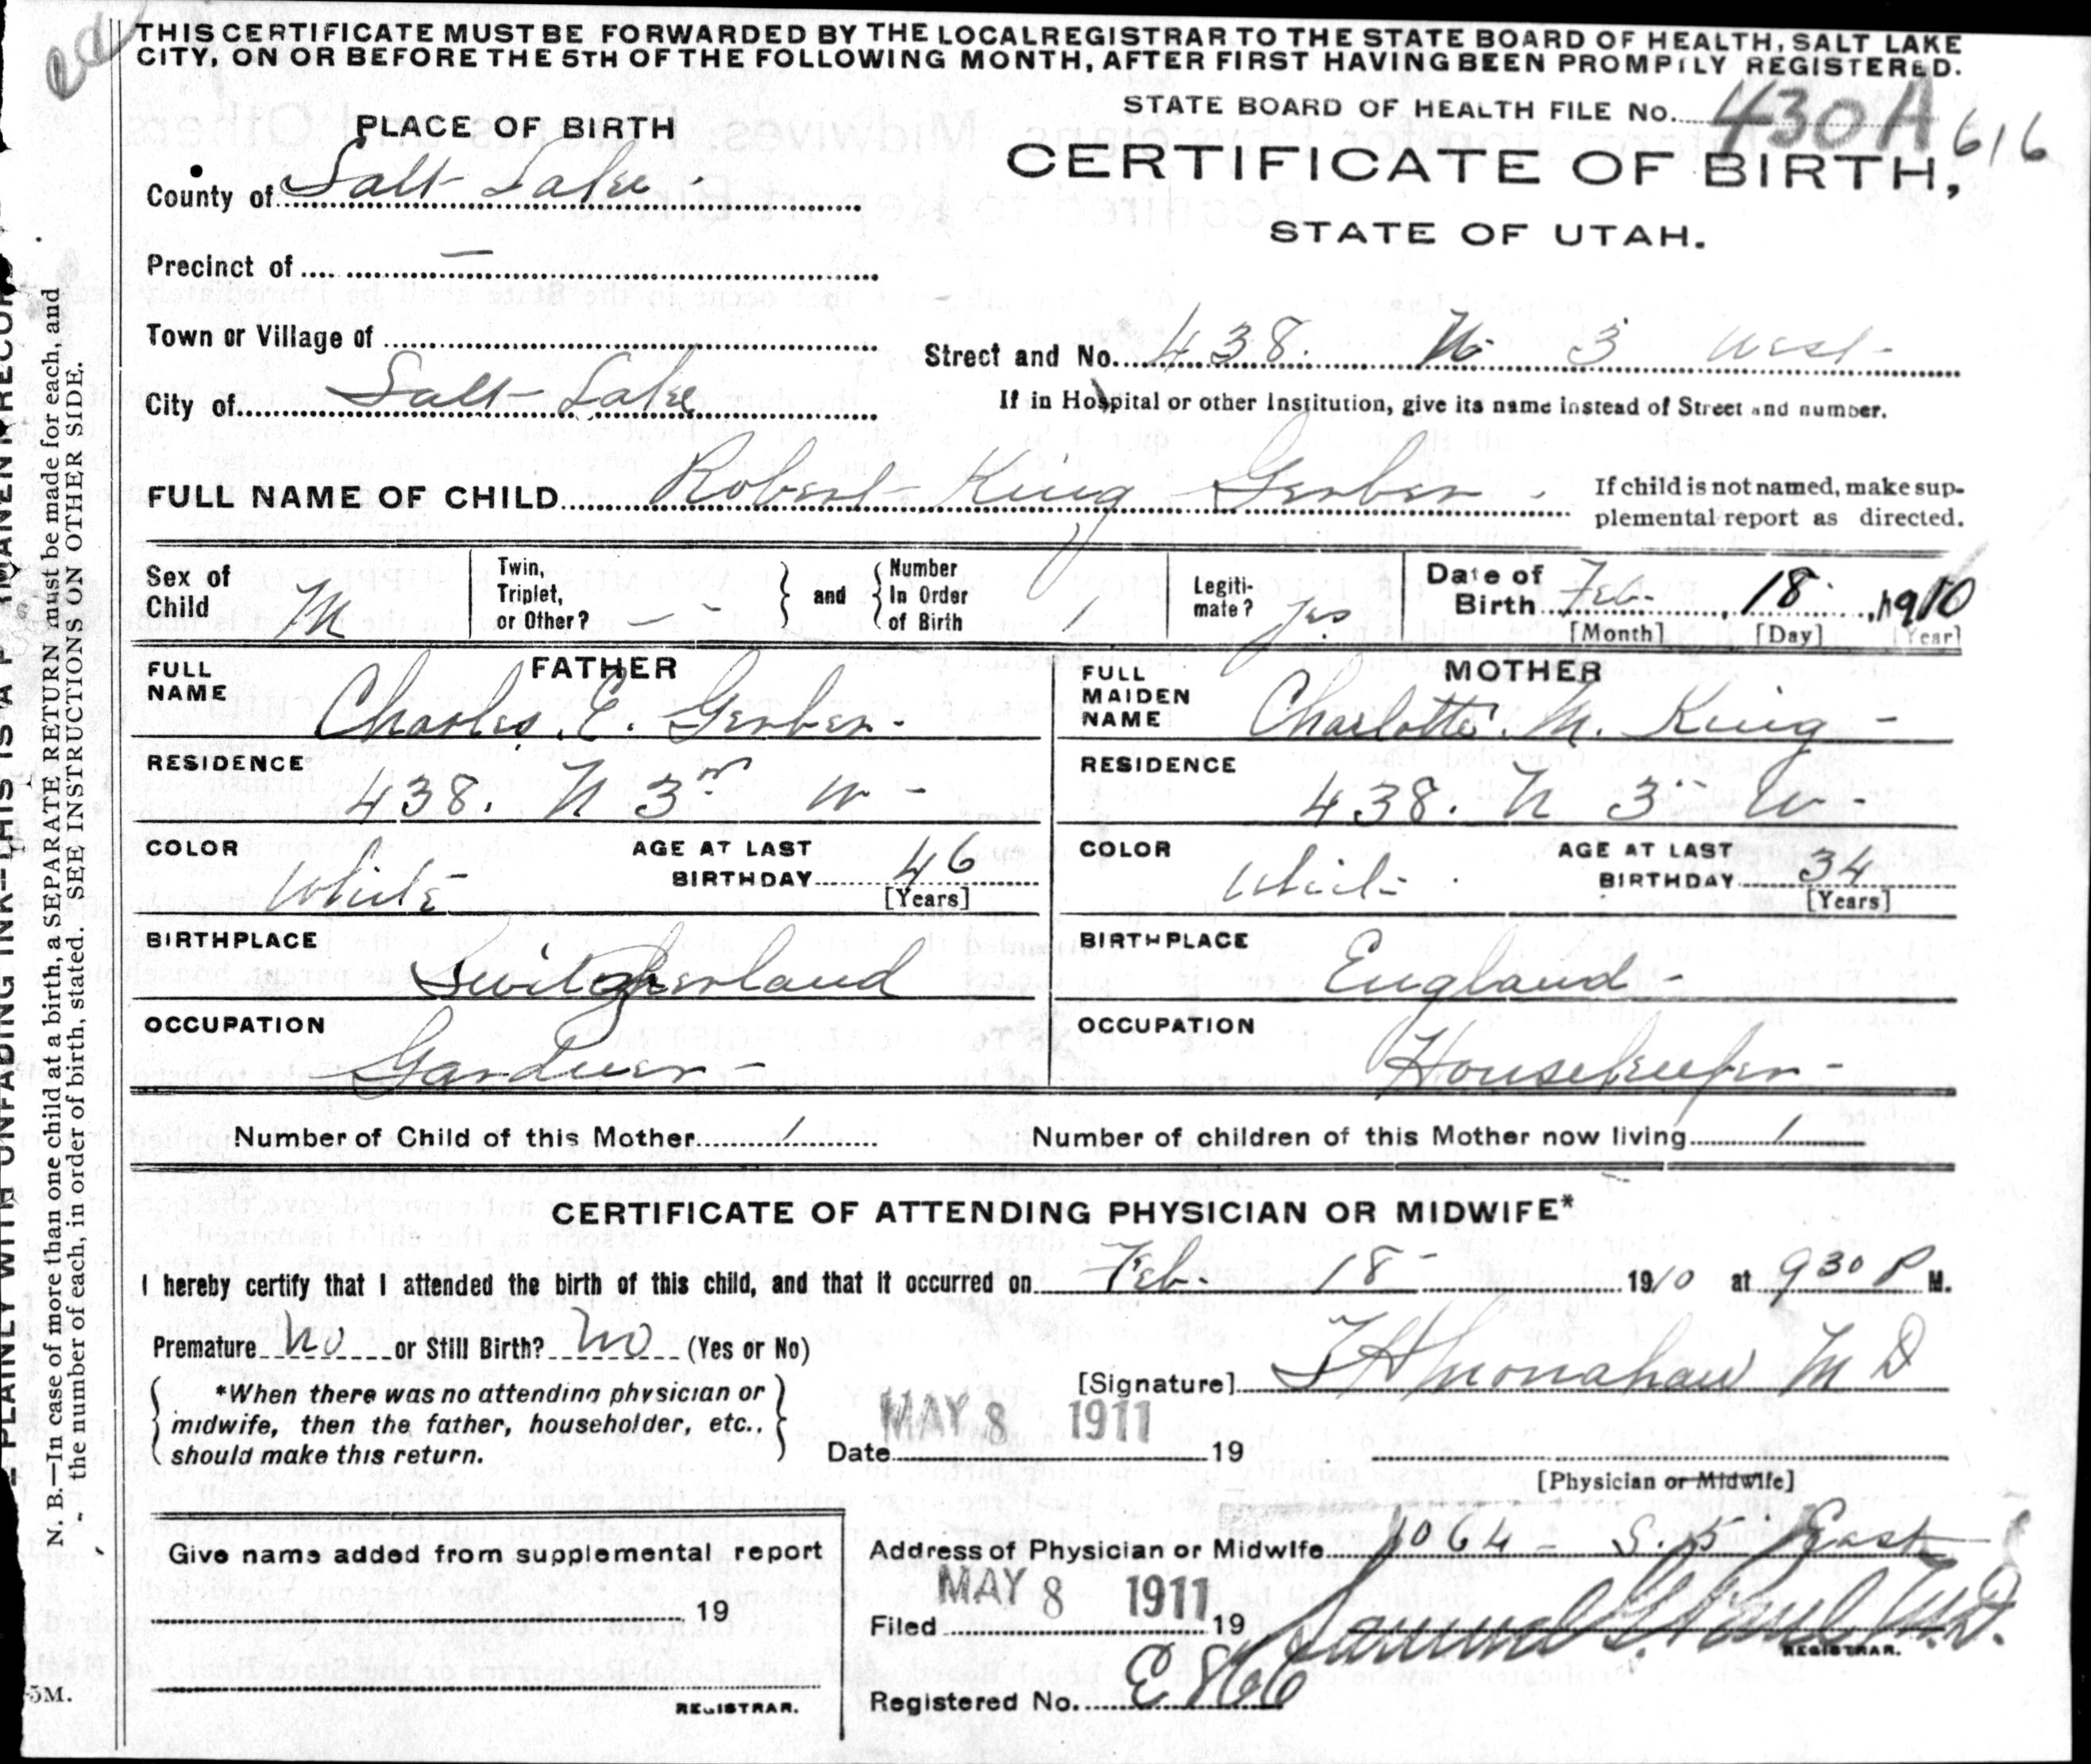 ed
THIS CERTIFICATE MUST BE FORWARDED BY THE LOCAL REGISTRAR TO THE STATE BOARD OF HEALTH, SALT LAKE
CITY, ON OR BEFORE THE 5TH OF THE FOLLOWING MONTH, AFTER FIRST HAVING BEEN PROMPTLY REGISTERED.
STATE BOARD OF HEALTH FILE No. 430A 616
PLACE OF BIRTH
CERTIFICATE OF BIRTH,
STATE OF UTAH.
County of Salt Lake.
Precinct of —
Town or Village of
Street and No. 438. N. 3 West-
City of Salt Lake
If in Hospital or other Institution, give its name instead of Street and number.
FULL NAME OF CHILD Robert King Gerber.
If child is not named, make sup-
plemental report as directed.
Sex of Child M
Twin, Triplet, or Other? — and Number In Order of Birth 1
Legiti-mate? yes
Date of Birth Feb. 18, 1910
[Month] [Day] [Year]
FATHER
FULL NAME Charles. E. Gerber.
RESIDENCE 438. N 3rd W-
COLOR White AGE AT LAST BIRTHDAY 46
[Years]
BIRTHPLACE Switzerland
OCCUPATION Gardner-
MOTHER
FULL MAIDEN NAME Charlotte. M. King-
RESIDENCE 438. N 3- W-
COLOR White AGE AT LAST BIRTHDAY 34
[Years]
BIRTHPLACE England-
OCCUPATION Housekeeper-
Number of Child of this Mother 1 Number of children of this Mother now living 1
CERTIFICATE OF ATTENDING PHYSICIAN OR MIDWIFE*
I hereby certify that I attended the birth of this child, and that it occurred on Feb. 18- 1910 at 9 30 P M.
Premature No or Still Birth? No (Yes or No)
*When there was no attending physician or
midwife, then the father, householder, etc.,
should make this return.
[Signature] Monahan M D
Date MAY 8 1911 19
[Physician or Midwife]
Give name added from supplemental report
19
REGISTRAR.
Address of Physician or Midwife 1064 - S. 5 East
Filed MAY 8 1911 19 Samuel G. Paul M.D.
REGISTRAR.
Registered No. E866
PLAINLY WITH UNFADING INK—THIS IS A PERMANENT RECORD
N. B.—In case of more than one child at a birth, a SEPARATE RETURN must be made for each, and
the number of each, in order of birth, stated. SEE INSTRUCTIONS ON OTHER SIDE.
5M.